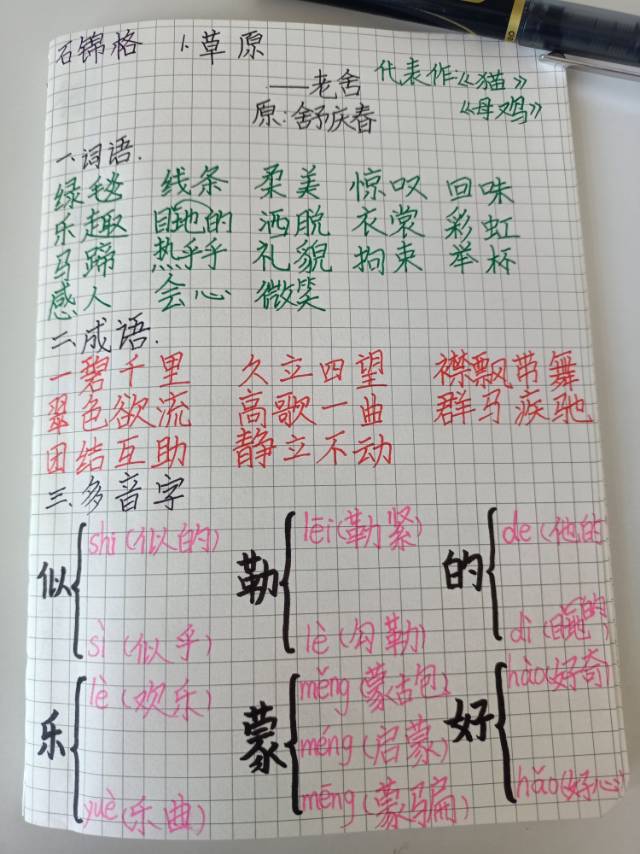 石锦格 1.草原
——老舍 代表作:《猫》
原:舒庆春 《母鸡》
一.词语.
绿毯 线条 柔美 惊叹 回味
乐趣 目地的 洒脱 衣裳 彩虹
马蹄 热乎乎 礼貌 拘束 举杯
感人 会心 微笑
二.成语.
一碧千里 久立四望 襟飘带舞
翠色欲流 高歌一曲 群马疾驰
团结互助 静立不动
三.多音字
似 shì(似的) sì(似乎)
勒 lēi(勒紧) lè(勾勒)
的 de(他的 dì(目地的)
乐 lè(欢乐) yuè(乐曲)
蒙 měng(蒙古包) méng(启蒙) mēng(蒙骗)
好 hào(好奇) hǎo(好心)